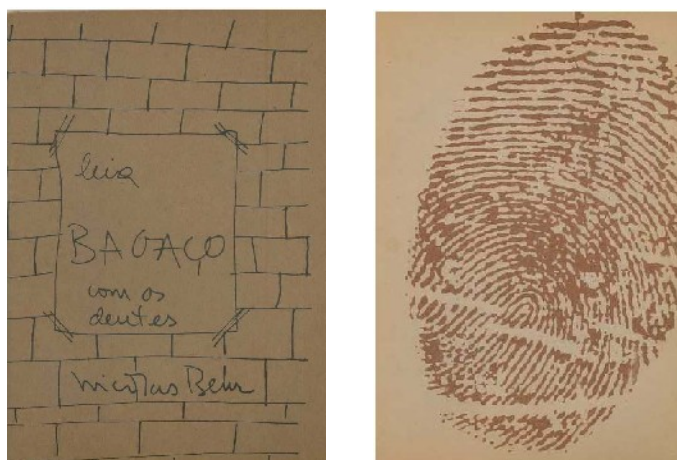 leia
BAGAÇO
com os
dentes
Nicolas Behr